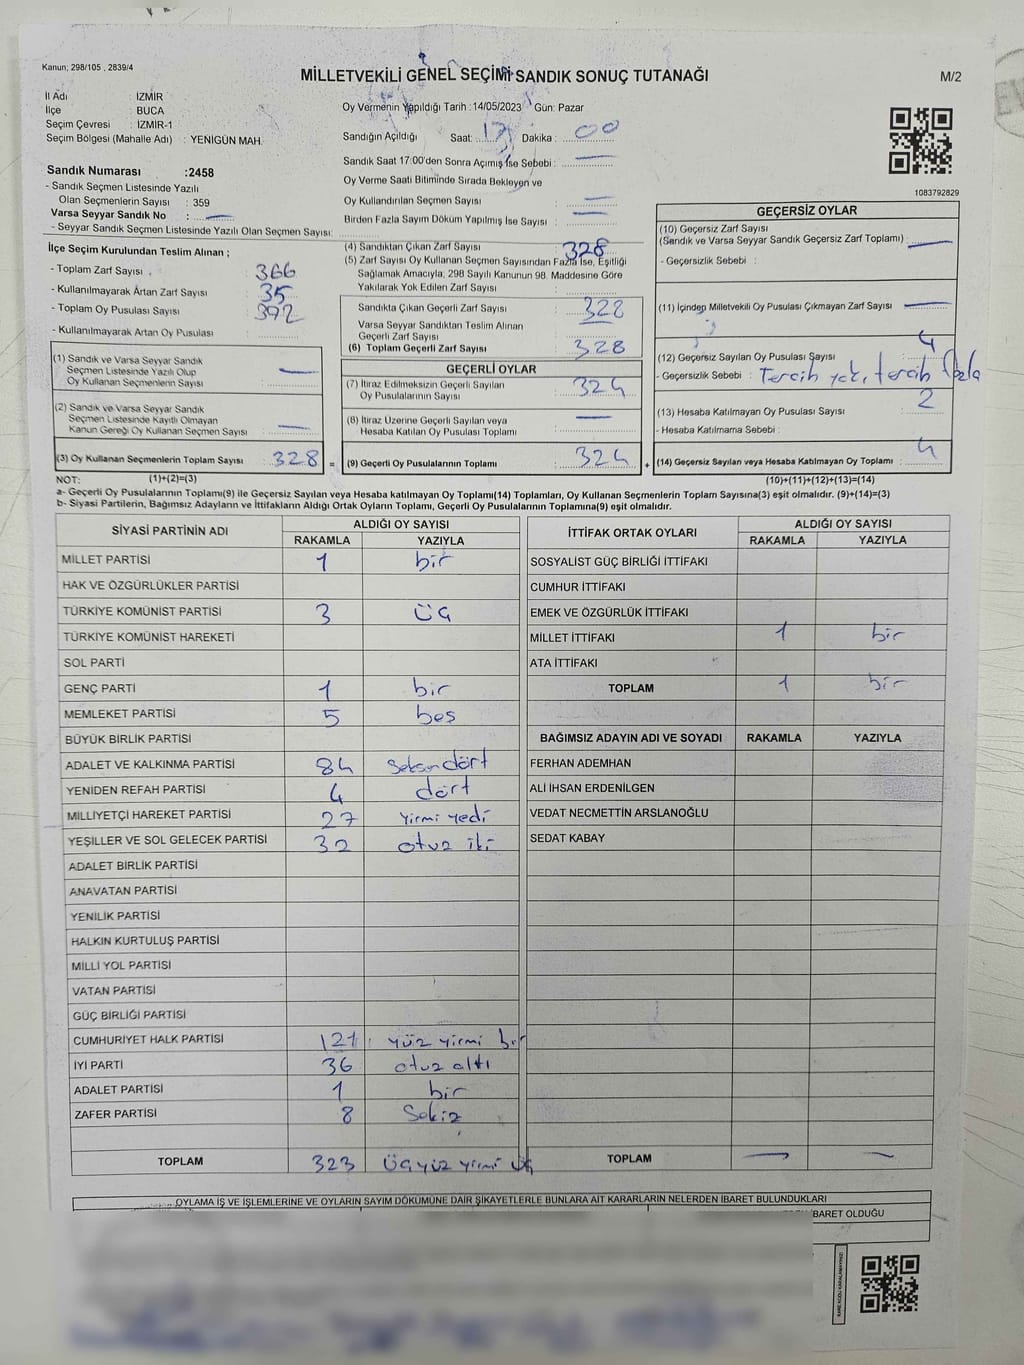 Kanun; 298/105 , 2839/4
MİLLETVEKİLİ GENEL SEÇİMİ SANDIK SONUÇ TUTANAĞI
M/2
İl Adı : İZMİR
İlçe : BUCA
Seçim Çevresi : İZMİR-1
Seçim Bölgesi (Mahalle Adı) : YENİGÜN MAH.
Oy Vermenin Yapıldığı Tarih :14/05/2023 Gün: Pazar
Sandığın Açıldığı Saat: 17 Dakika : 00
Sandık Saat 17:00'den Sonra Açımış İse Sebebi : —
Oy Verme Saati Bitiminde Sırada Bekleyen ve
Oy Kullandırılan Seçmen Sayısı —
Birden Fazla Sayım Döküm Yapılmış İse Sayısı —
1083792829
Sandık Numarası :2458
- Sandık Seçmen Listesinde Yazılı
Olan Seçmenlerin Sayısı : 359
Varsa Seyyar Sandık No : —
- Seyyar Sandık Seçmen Listesinde Yazılı Olan Seçmen Sayısı:
İlçe Seçim Kurulundan Teslim Alınan ;
- Toplam Zarf Sayısı : 366
- Kullanılmayarak Artan Zarf Sayısı 35
- Toplam Oy Pusulası Sayısı : 392
- Kullanılmayarak Artan Oy Pusulası
(1) Sandık ve Varsa Seyyar Sandık
Seçmen Listesinde Yazılı Olup
Oy Kullanan Seçmenlerin Sayısı —
(2) Sandık ve Varsa Seyyar Sandık
Seçmen Listesinde Kayıtlı Olmayan
Kanun Gereği Oy Kullanan Seçmen Sayısı —
(3) Oy Kullanan Seçmenlerin Toplam Sayısı 328 =
(1)+(2)=(3)
(4) Sandıktan Çıkan Zarf Sayısı 328
(5) Zarf Sayısı Oy Kullanan Seçmen Sayısından Fazla İse, Eşitliği
Sağlamak Amacıyla, 298 Sayılı Kanunun 98. Maddesine Göre
Yakılarak Yok Edilen Zarf Sayısı :
Sandıkta Çıkan Geçerli Zarf Sayısı : 328
Varsa Seyyar Sandıktan Teslim Alınan
Geçerli Zarf Sayısı
(6) Toplam Geçerli Zarf Sayısı 328
GEÇERLİ OYLAR
(7) İtiraz Edilmeksizin Geçerli Sayılan
Oy Pusulalarının Sayısı 324
(8) İtiraz Üzerine Geçerli Sayılan veya
Hesaba Katılan Oy Pusulası Toplamı —
(9) Geçerli Oy Pusulalarının Toplamı 324 +
GEÇERSİZ OYLAR
(10) Geçersiz Zarf Sayısı
(Sandık ve Varsa Seyyar Sandık Geçersiz Zarf Toplamı) : —
- Geçersizlik Sebebi :
(11) İçinden Milletvekili Oy Pusulası Çıkmayan Zarf Sayısı —
(12) Geçersiz Sayılan Oy Pusulası Sayısı 4
- Geçersizlik Sebebi : Tercih yok, tercih fazla
(13) Hesaba Katılmayan Oy Pusulası Sayısı 2
- Hesaba Katılmama Sebebi :
(14) Geçersiz Sayılan veya Hesaba Katılmayan Oy Toplamı 4
(10)+(11)+(12)+(13)=(14)
NOT:
a- Geçerli Oy Pusulalarının Toplamı(9) ile Geçersiz Sayılan veya Hesaba katılmayan Oy Toplamı(14) Toplamları, Oy Kullanan Seçmenlerin Toplam Sayısına(3) eşit olmalıdır. (9)+(14)=(3)
b- Siyasi Partilerin, Bağımsız Adayların ve İttifakların Aldığı Ortak Oyların Toplamı, Geçerli Oy Pusulalarının Toplamına(9) eşit olmalıdır.
SİYASİ PARTİNİN ADI ALDIĞI OY SAYISI
RAKAMLA YAZIYLA
MİLLET PARTİSİ 1 bir
HAK VE ÖZGÜRLÜKLER PARTİSİ
TÜRKİYE KOMÜNİST PARTİSİ 3 üç
TÜRKİYE KOMÜNİST HAREKETİ
SOL PARTİ
GENÇ PARTİ 1 bir
MEMLEKET PARTİSİ 5 beş
BÜYÜK BİRLİK PARTİSİ
ADALET VE KALKINMA PARTİSİ 84 seksen dört
YENİDEN REFAH PARTİSİ 4 dört
MİLLİYETÇİ HAREKET PARTİSİ 27 yirmi yedi
YEŞİLLER VE SOL GELECEK PARTİSİ 32 otuz iki
ADALET BİRLİK PARTİSİ
ANAVATAN PARTİSİ
YENİLİK PARTİSİ
HALKIN KURTULUŞ PARTİSİ
MİLLİ YOL PARTİSİ
VATAN PARTİSİ
GÜÇ BİRLİĞİ PARTİSİ
CUMHURİYET HALK PARTİSİ 121 yüz yirmi bir
İYİ PARTİ 36 otuz altı
ADALET PARTİSİ 1 bir
ZAFER PARTİSİ 8 Sekiz
TOPLAM 323 üçyüz yirmi üç
İTTİFAK ORTAK OYLARI ALDIĞI OY SAYISI
RAKAMLA YAZIYLA
SOSYALİST GÜÇ BİRLİĞİ İTTİFAKI
CUMHUR İTTİFAKI
EMEK VE ÖZGÜRLÜK İTTİFAKI
MİLLET İTTİFAKI 1 bir
ATA İTTİFAKI
TOPLAM 1 bir
BAĞIMSIZ ADAYIN ADI VE SOYADI RAKAMLA YAZIYLA
FERHAN ADEMHAN
ALİ İHSAN ERDENİLGEN
VEDAT NECMETTİN ARSLANOĞLU
SEDAT KABAY
TOPLAM — —
OYLAMA İŞ VE İŞLEMLERİNE VE OYLARIN SAYIM DÖKÜMÜNE DAİR ŞİKAYETLERLE BUNLARA AİT KARARLARIN NELERDEN İBARET BULUNDUKLARI
İBARET OLDUĞU